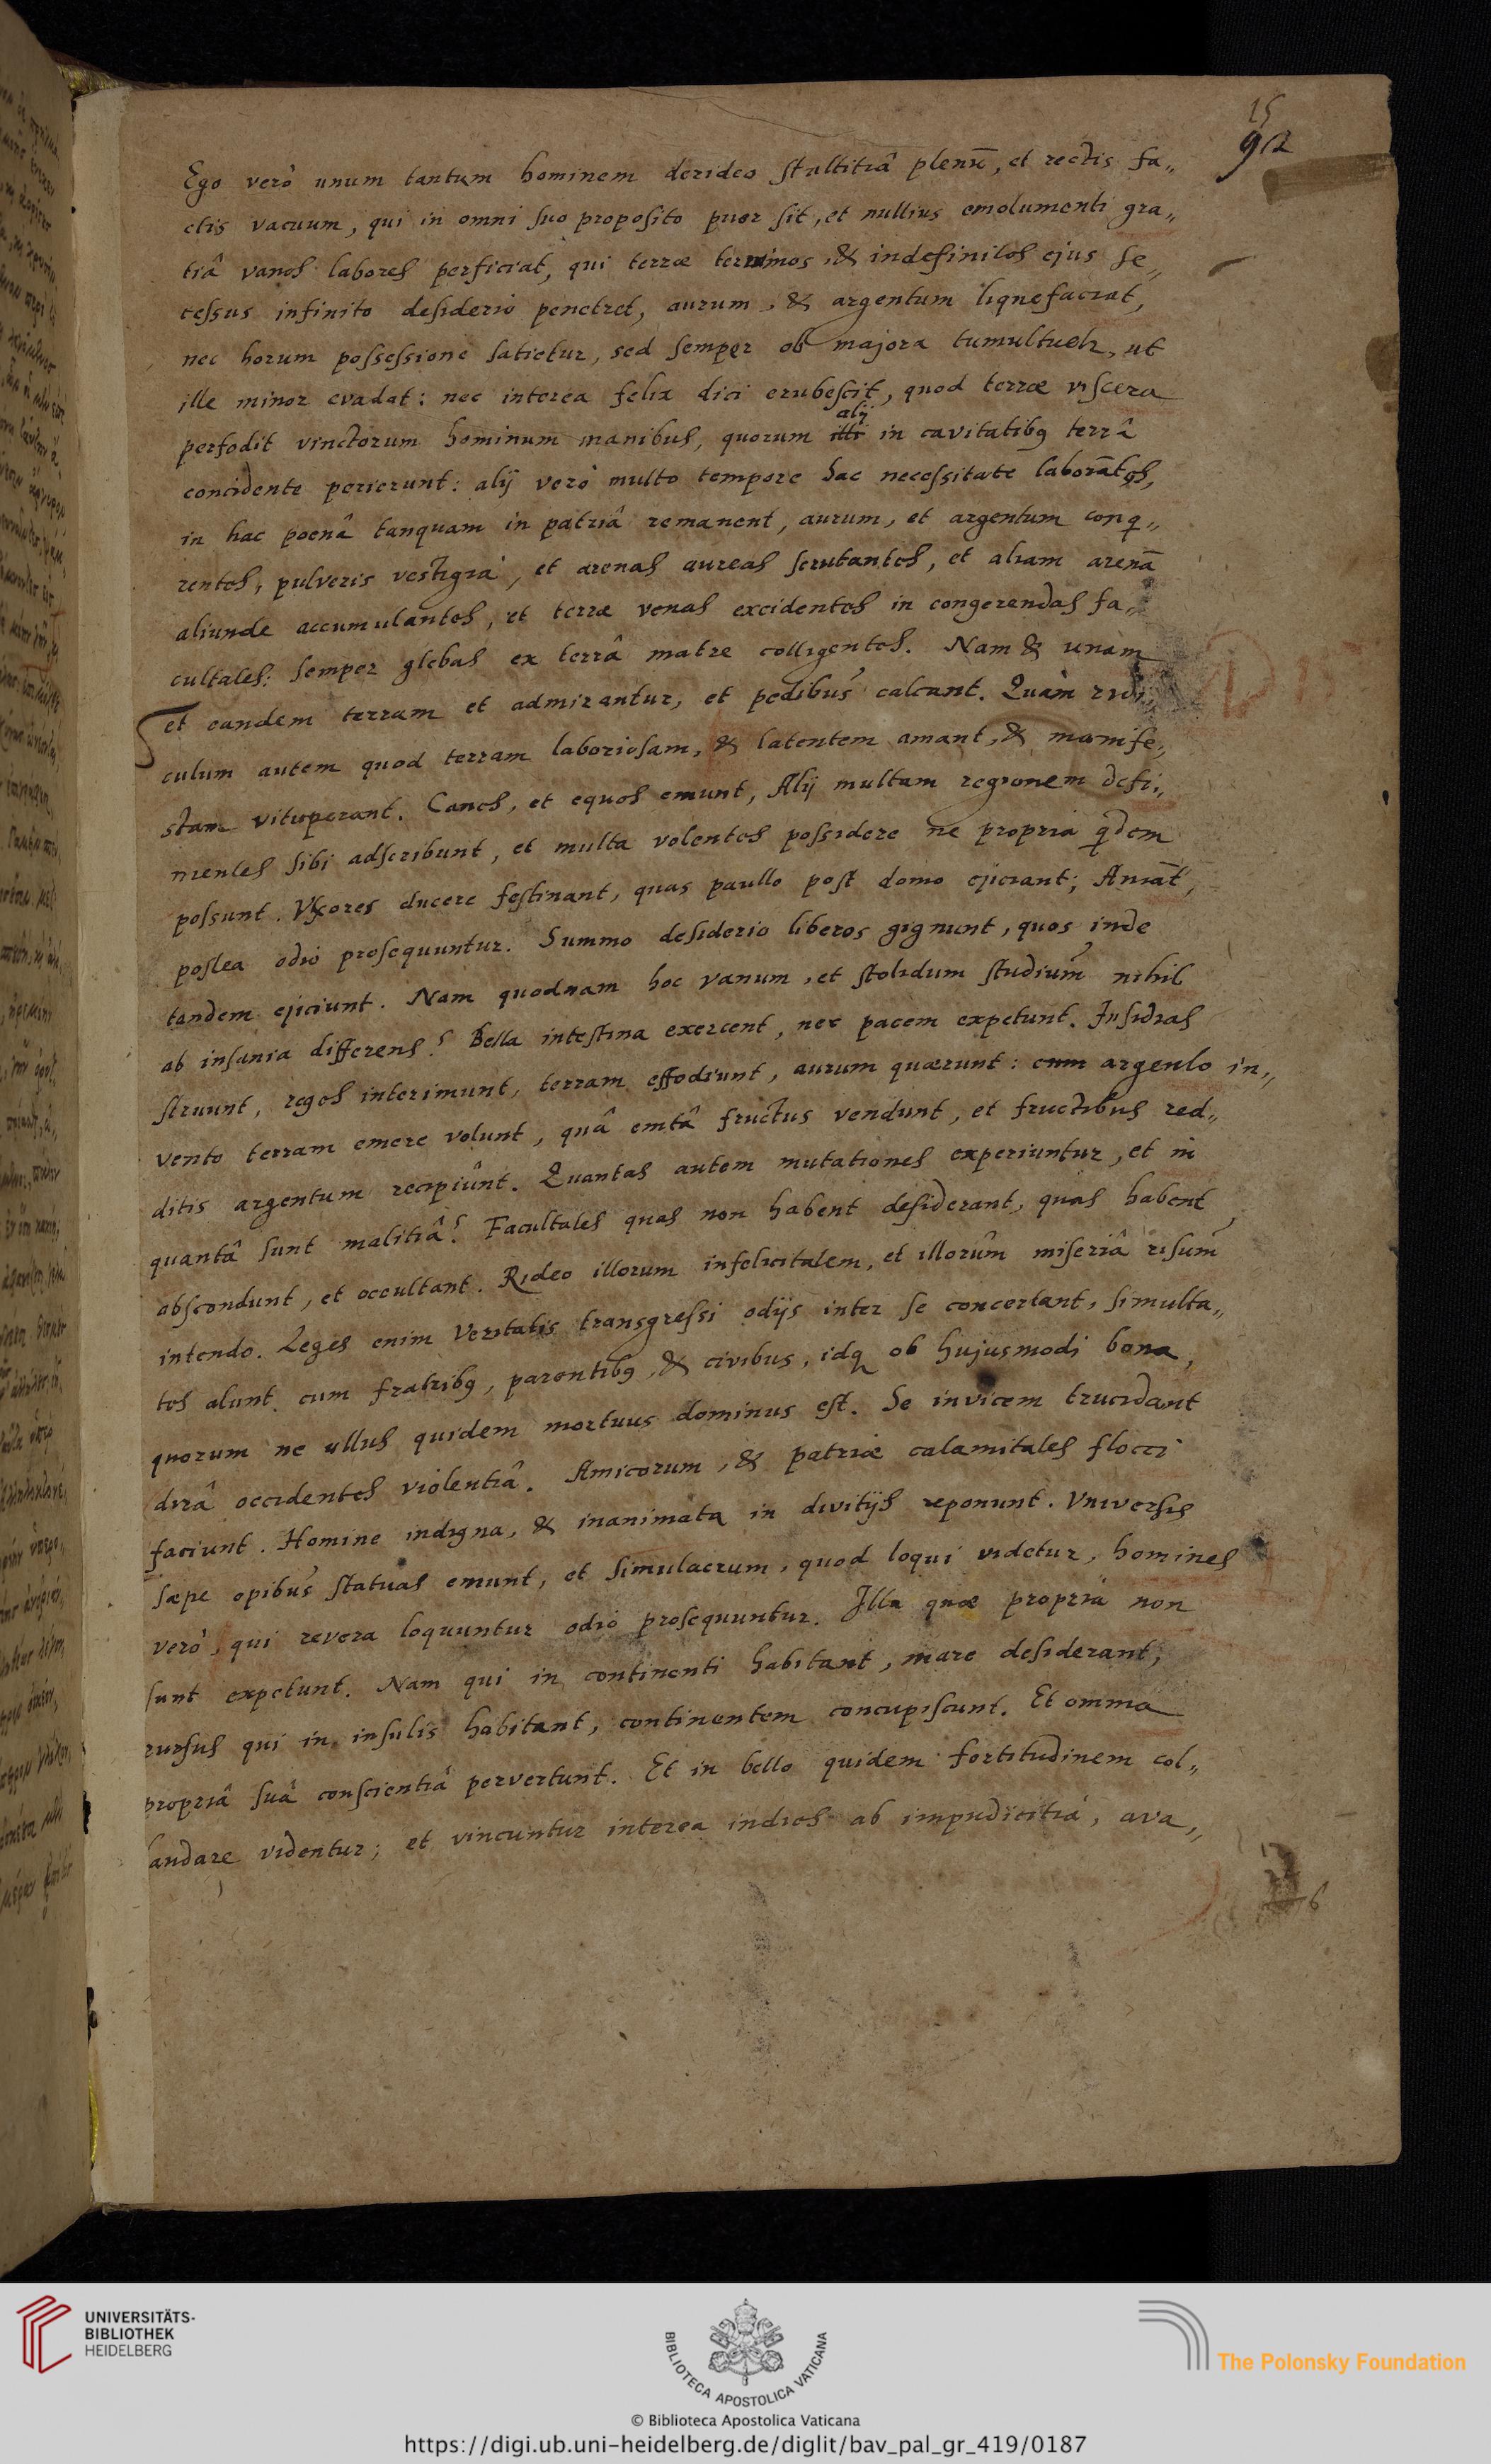 15
92
Ego verò unum tantum hominem derideo stultitiâ plenũ, et rectis fa„
ctis vacuum, qui in omni suo proposito puer sit, et nullius emolumenti gra„
tiâ vanos labores perficiat, qui terræ terminos, & indefinitos ejus se„
cessus infinito desiderio penetret, aurum, & argentum liquefaciat,
nec horum possessione satietur, sed semper ob majora tumultuetr, ut
ille minor evadat: nec interea felix dici erubescit, quod terræ viscera
alij
perfodit vinctorum hominum manibus, quorum illi in cavitatibꝯ terrâ
concidente perierunt: alij verò multo tempore hac necessitate laborãtes,
in hac poenâ tanquam in patriâ remanent, aurum, et argentum conq„
rentes, pulveris vestigia, et arenas aureas scrutantes, et aliam arenã
aliunde accumulantes, et terræ venas excidentes in congerendas fa„
cultates: semper glebas ex terrâ matre colligentes. Nam & unam
et eandem terram et admirantur, et pedibus calcant. Quàm ridi„
culum autem quod terram laboriosam, & latentem amant, & manife„
stam vituperant. Canes, et equos emunt, Alij multam regionem defi„
nientes sibi adscribunt, et multa volentes possidere ne propria qdem
possunt. Uxores ducere festinant, quas paullo post domo ejiciant; Amãt,
postea odio prosequuntur. Summo desiderio liberos gignunt, quos inde
tandem ejiciunt. Nam quodnam hoc vanum, et stolidum studium nihil
ab insania differens? Bella intestina exercent, nec pacem expetunt. Insidias
struunt, reges interimunt, terram effodiunt, aurum quærunt: cum argento in„
vento terram emere volunt, quâ emtâ fructus vendunt, et fructibus red„
ditis argentum recipiunt. Quantas autem mutationes experiuntur, et in
quantâ sunt malitiâ? Facultates quas non habent desiderant, quas habent,
abscondunt, et occultant. Rideo illorum infelicitatem, et illorum miseriâ risum
intendo. Leges enim Veritatis transgressi odijs inter se concertant, simulta„
tes alunt cum fratribꝯ, parentibꝯ, & civibus, idq ob hujusmodi bona,
quorum ne ullus quidem mortuus dominus est. Se invicem trucidant
dirâ occidentes violentiâ. Amicorum, & patriæ calamitates flocci
faciunt. Homine indigna, & inanimata in divitijs reponunt. Universis
sæpe opibus statuas emunt, et simulacrum, quod loqui videtur, homines
verò, qui revera loquuntur odio prosequuntur. Illa quæ propria non
sunt expetunt. Nam qui in continenti habitant, mare desiderant,
rursus qui in insulis habitant, continentem concupiscunt. Et omnia
propriâ suâ conscientiâ pervertunt. Et in bello quidem fortitudinem col„
laudare videntur; et vincuntur interea indies ab impudicitiâ, ava„
UNIVERSITÄTS-
BIBLIOTHEK
HEIDELBERG
BIBLIOTECA APOSTOLICA VATICANA
The Polonsky Foundation
© Biblioteca Apostolica Vaticana
https://digi.ub.uni-heidelberg.de/diglit/bav_pal_gr_419/0187